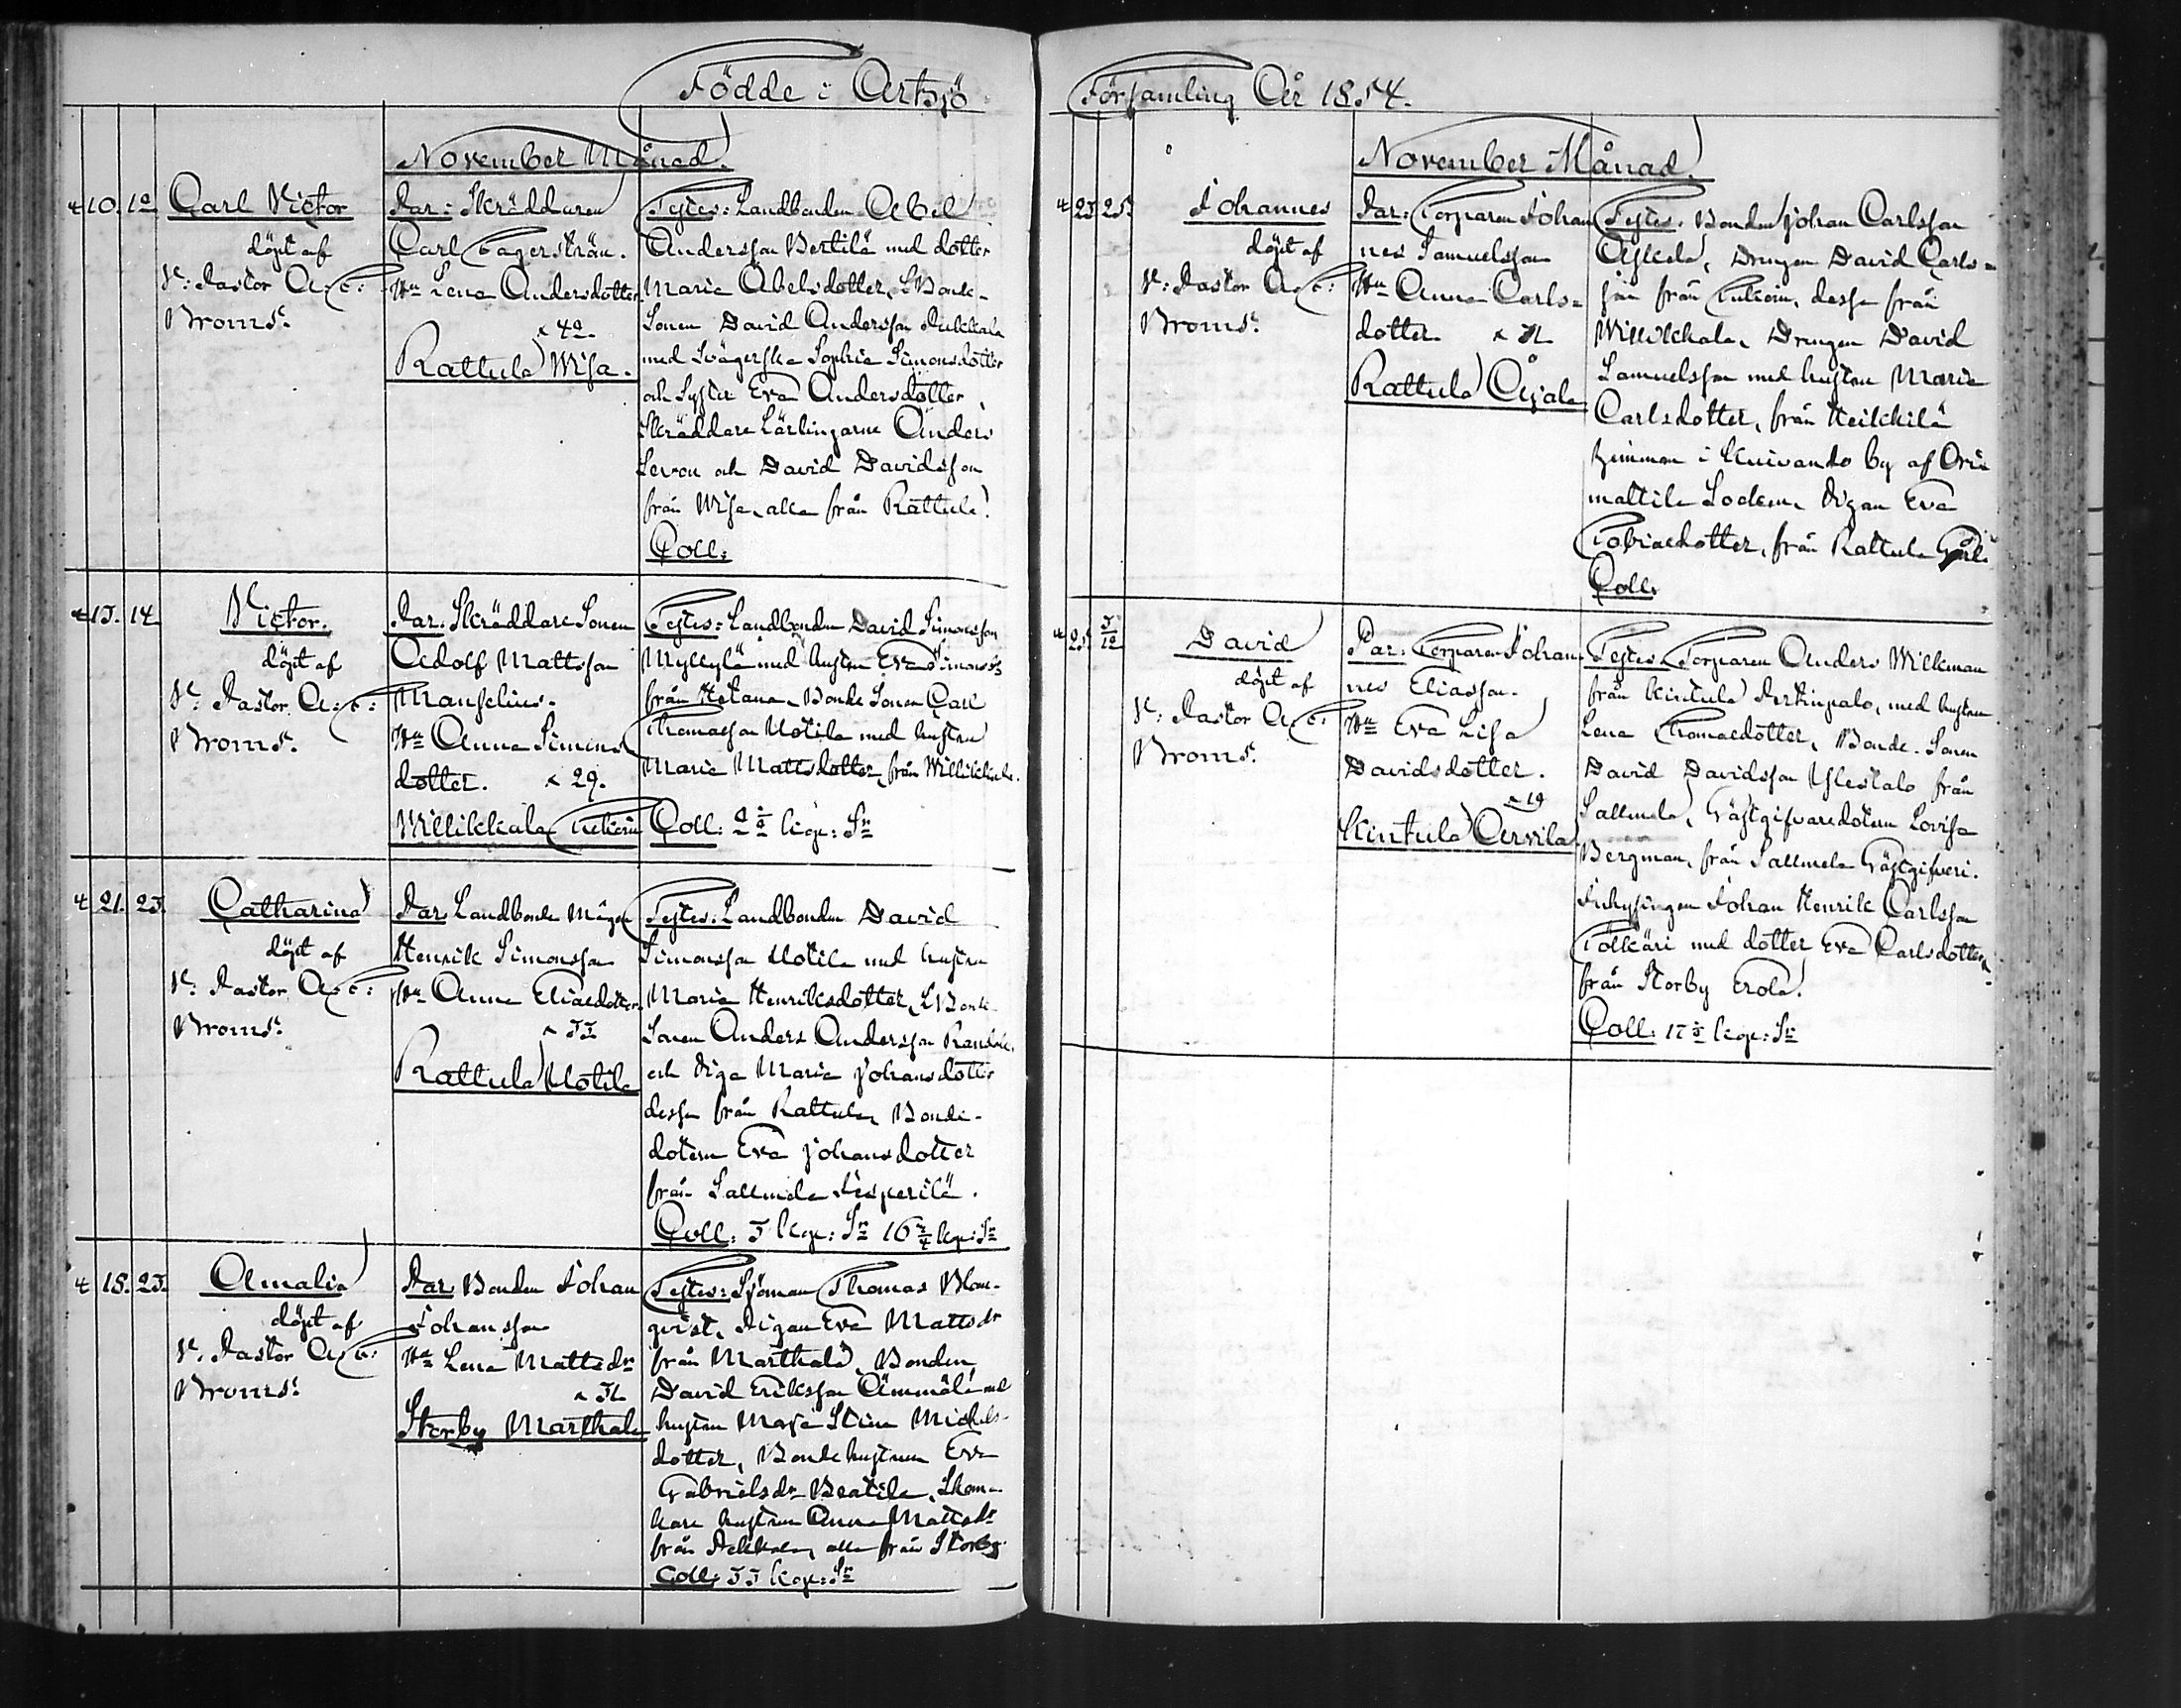 Födde i Artsjö
November Månad.
10. 12 Carl Victor
döpt af
V: Pastor A: E:
Broms:
Par: Skräddaren
Carl Fagerström.
Hu Lena Andersdotter
x 42
Rattula Wisa.
Testes: Landbonden Abel
Andersson Bertilä med dotter
Maria Abelsdotter, LBonde-
Sonen David Andersson
med Svägerska Sophia Simonsdotter
och Syster Eva Andersdotter,
Skräddare Lärlingarne Anders
Levon och David Davidsson
från Wisa, alla från Rattula.
Coll:
13. 14 Victor.
döpt af
V: Pastor A: E:
Broms:
Par: Skräddare Sonen
Adolf Mattsson
Manselius.
Hu Anna Simons
dotter. x 29.
Willikkala
Testes: Landbonden David Simonsson
Myllylä med hustru Eva Simonsd
från Hetana, Bonde Sonen Carl
Thomasson Uotila med hustru
Maria Mattsdotter, från Willikkala.
Coll: kop: Sr
21. 23. Catharina
döpt af
V: Pastor A: E:
Broms:
Par: Landbonde Mågen
Henrik Simonsson
Hu Anna Eliaedotter
x 33
Rattula Uotila
Testes: Landbonden David
Simonsson Uotila med hustru
Maria Henriksdotter, LBonde
Sonen Anders Andersson
och Piga Maria Johansdotter
dessa från Rattula, Bonde-
dotern Eva Johansdotter
från Sallmela Jesperilä.
Coll: 3 kop: Sr 16 3/4 kop: Sr
18. 23. Amalia
döpt af
V: Pastor A: E:
Broms:
Par: Bonden Johan
Johansson
Hu Lena Mattsdr
x 32
Storby Marthala
Testes: Sjöman Thomas Blom-
qvist, Pigan Eva Mattsdr
från Marthala, Bonden
David Eriksson Ämmälä med
hustru Maja Stina Michels-
dotter, Bonde hustrun Eva
Gabrielsdr Beatila, Skoma-
kare hustrun Anna Mattsdr
från alla från Storby.
Coll: 33 kop: Sr
Församling År 1854.
November Månad.
23 25. Johannes
döpt af
V: Pastor A: E:
Broms:
Par: Torparen Johan
nes Samuelsson
Hu Anna Carls-
dotter x 32
Rattula Öijala
Testes: Bonden Johan Carlsson
Askola, Drengen David Carls-
son från dessa från
Willikkala, Drengen David
Samuelsson med hustru Maria
Carlsdotter, från Heikkilä
hemman i Kuivando by af Ori
mattila Socken, Pigan Eva
Tobiaedotter, från Rattula Gård.
Coll:
25. 3/12 David
döpt af
V: Pastor A: E:
Broms:
Par: Torparen Johan
nes Eliasson.
Hu Eva Lisa
Davidsdotter.
x 19
Kintula Arvila
Testes: Torparen Anders Wikman
från Kintula Pertinpalo, med hustru
Lena Thomaedotter, Bonde Sonen
David Davidsson Ylestalo från
Sallmela, Gästgifvaredotern Lovisa
Bergman, från Sallmela Gästgifveri.
Inhysingen Johan Henrik Carlsson
Tölkäri med dotter Eva Carlsdotter,
från Storby Erola.
Coll: 17 1/2 kop: Sr